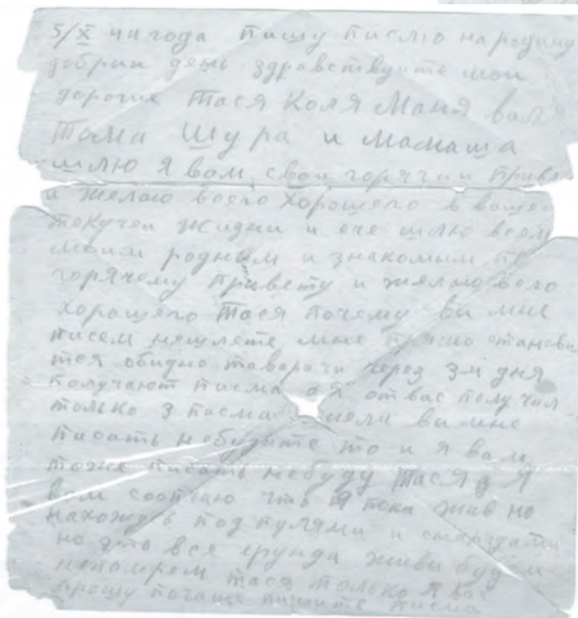 5/X 41 года пишу писмо народину
добрии день здравствуите мои
дорогие Тася Коля Маня Валя
Тома Шура и Мамаша
шлю я вам свои горячии приве
и желаю всего хорошего в вашей
текучеи жизни и еще шлю всем
моим родным и знакомым по
горячему привету и желаю всего
хорошего Тася почему вы мне
писем нешлете мне прямо станови
тся обидно товарачи через 3 4 дня
получают писма а я от вас получил
только 3 писма если вы мне
писать небудите то и я вам
тоже писать небуду Тася я
вам сообчаю что я пока жив но
нахожусь под пулями и снарядами
но это вся ерунда живы будем
непомрем Тася только я вас
прошу почаще пишите писма